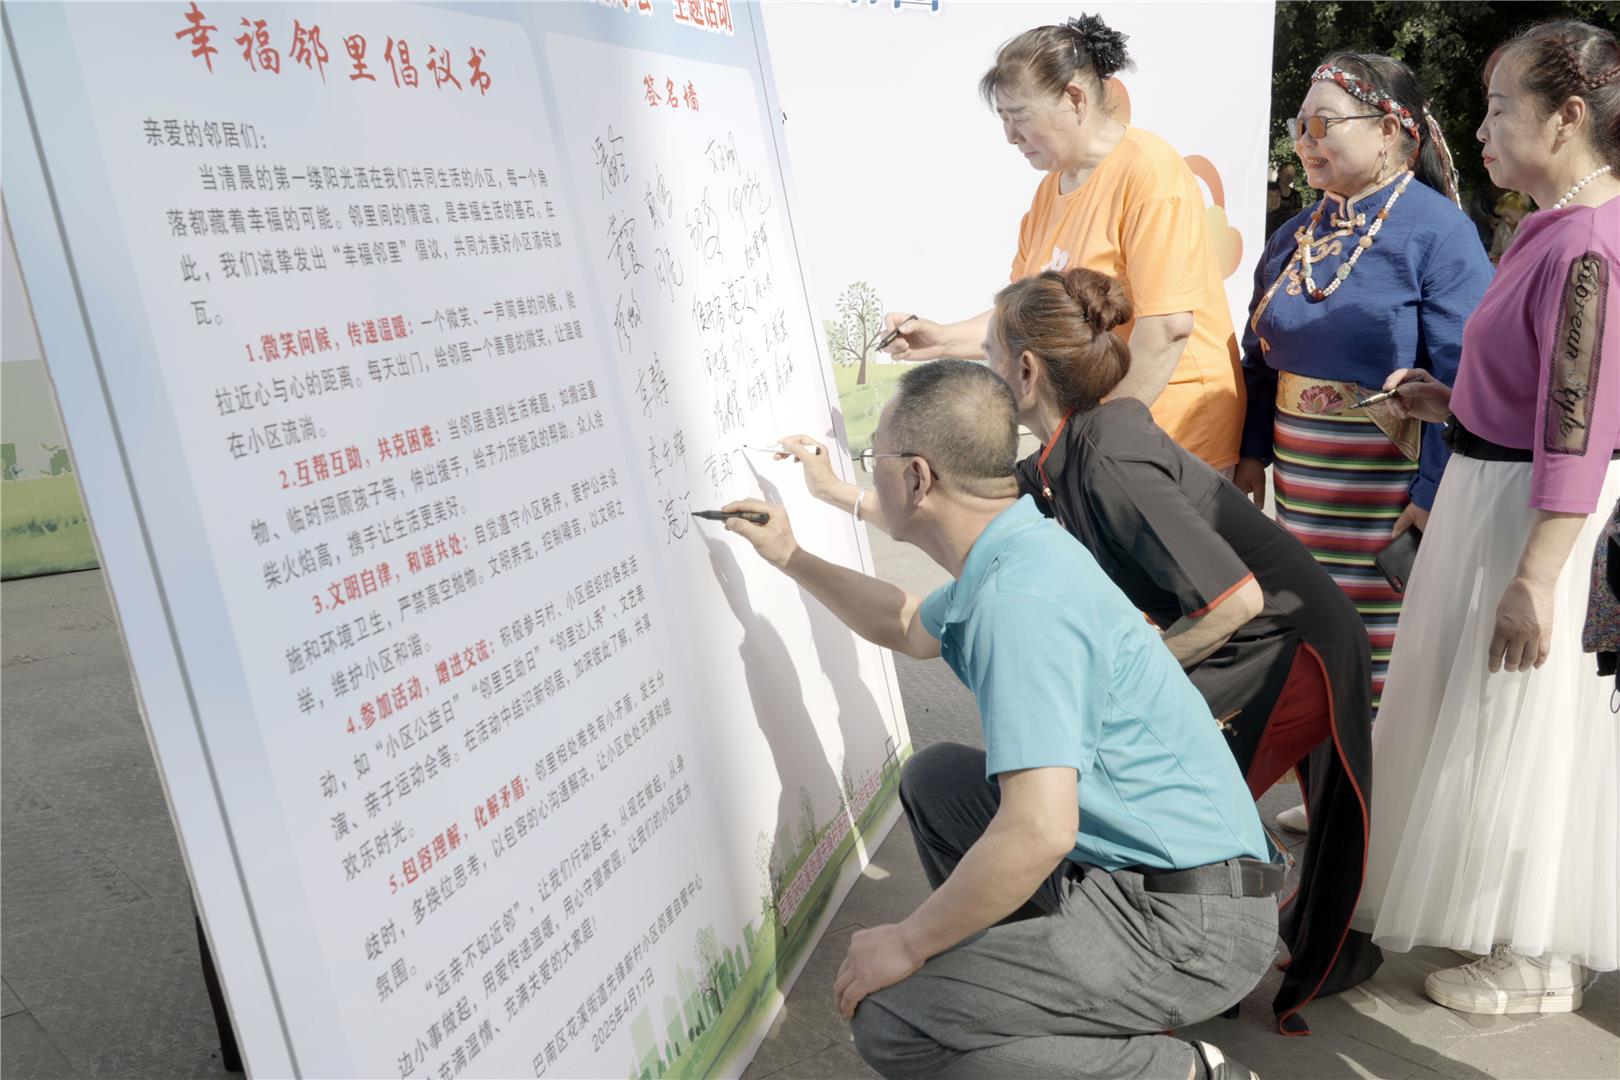 主题活动
幸福邻里倡议书
亲爱的邻居们：
当清晨的第一缕阳光洒在我们共同生活的小区，每一个角
落都藏着幸福的可能。邻里间的情谊，是幸福生活的基石。在
此，我们诚挚发出“幸福邻里”倡议，共同为美好小区添砖加
瓦。
1.微笑问候，传递温暖：一个微笑、一声简单的问候，能
拉近心与心的距离。每天出门，给邻居一个善意的微笑，让温暖
在小区流淌。
2.互帮互助，共克困难：当邻居遇到生活难题，如搬运重
物、临时照顾孩子等，伸出援手，给予力所能及的帮助。众人拾
柴火焰高，携手让生活更美好。
3.文明自律，和谐共处：自觉遵守小区秩序，爱护公共设
施和环境卫生，严禁高空抛物。文明养宠，控制噪音，以文明之
举，维护小区和谐。
4.参加活动，增进交流：积极参与村、小区组织的各类活
动，如“小区公益日”“邻里互助日”“邻里达人秀”、文艺表
演、亲子运动会等。在活动中结识新邻居，加深彼此了解，共享
欢乐时光。
5.包容理解，化解矛盾：邻里相处难免有小矛盾，发生分
歧时，多换位思考，以包容的心沟通解决，让小区处处充满和睦
氛围。
“远亲不如近邻”，让我们行动起来，从现在做起，从身
边小事做起，用爱传递温暖，用心守望家园。让我们的小区成为
充满温情、充满关爱的大家庭！
巴南区花溪街道先锋新村小区邻里自管中心
2025年4月17日
签名墙
李志辉
Style